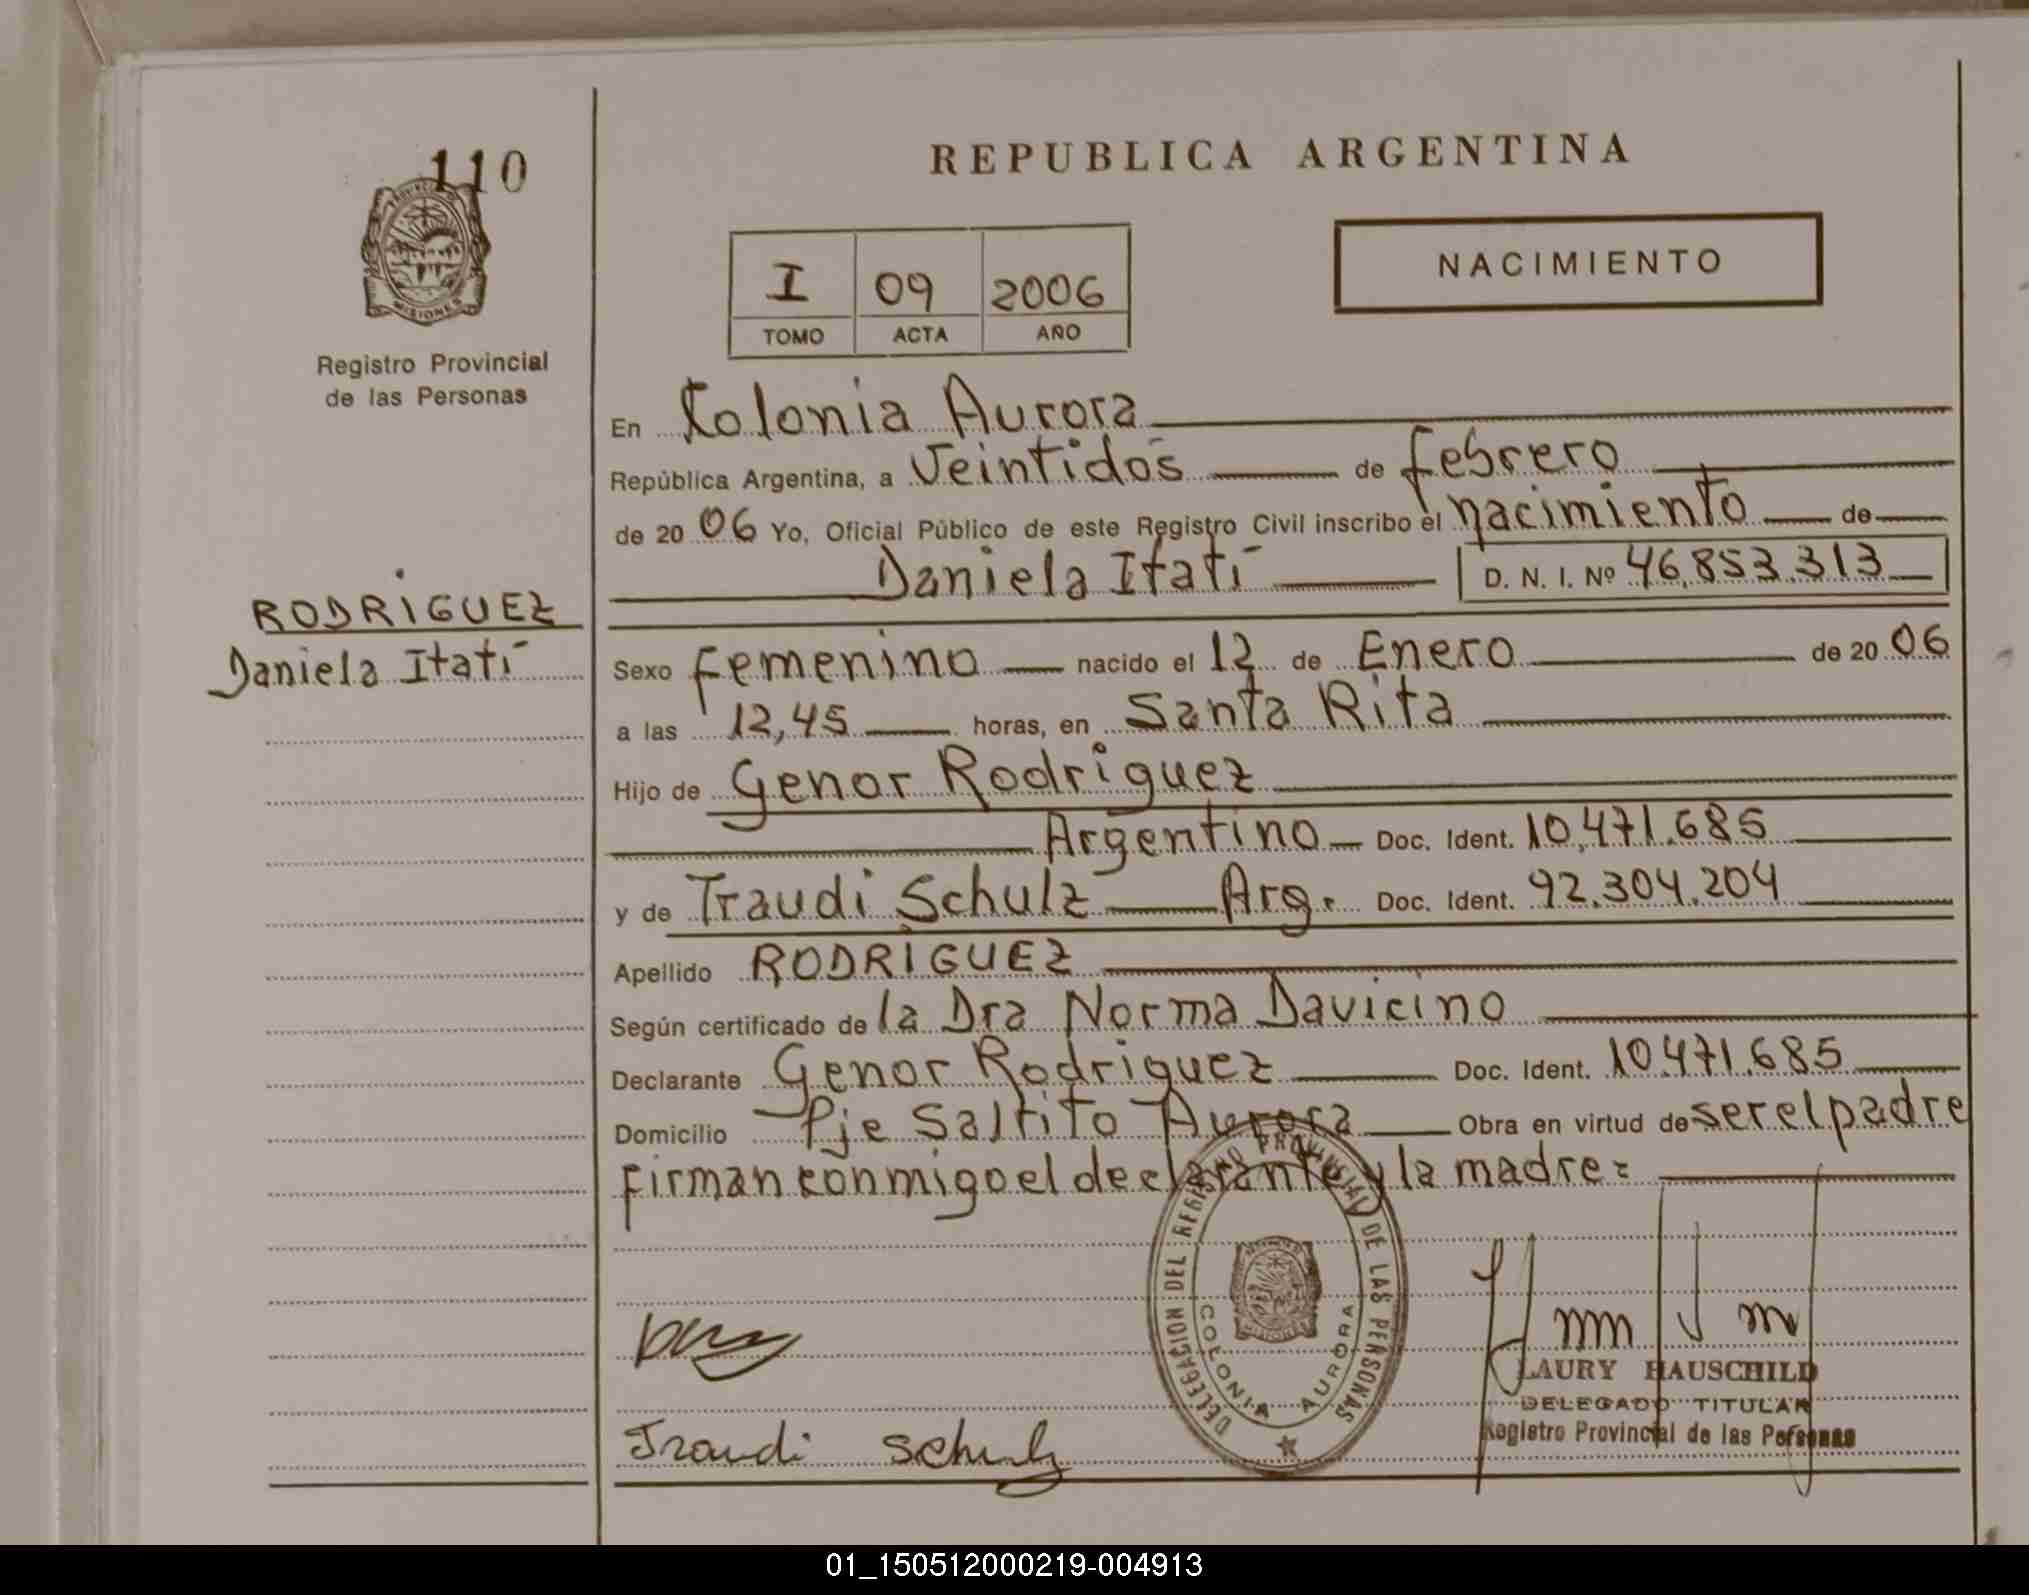 110
PROVINCIA DE
MISIONES
Registro Provincial
de las Personas
RODRIGUEZ
Daniela Itatí
REPUBLICA ARGENTINA
NACIMIENTO
I 09 2006
TOMO ACTA AÑO
En Colonia Aurora
República Argentina, a Veintidós de febrero
de 2006 Yo, Oficial Público de este Registro Civil inscribo el nacimiento de
Daniela Itatí D. N. I. Nº 46.853.313
Sexo femenino nacido el 12 de Enero de 2006
a las 12,45 horas, en Santa Rita
Hijo de Genor Rodriguez
Argentino Doc. Ident. 10.471.685
y de Traudi Schulz Arg. Doc. Ident. 92.304.204
Apellido RODRIGUEZ
Según certificado de la Dra Norma Davicino
Declarante Genor Rodriguez Doc. Ident. 10.471.685
Domicilio Pje Saltito Aurora Obra en virtud de ser el padre
firman conmigo el declarante y la madre=
DELEGACION DEL REGISTRO PROVINCIAL DE LAS PERSONAS
COLONIA AURORA
Traudi Schulz
LAURY HAUSCHILD
DELEGADO TITULAR
Registro Provincial de las Personas
01_150512000219-004913